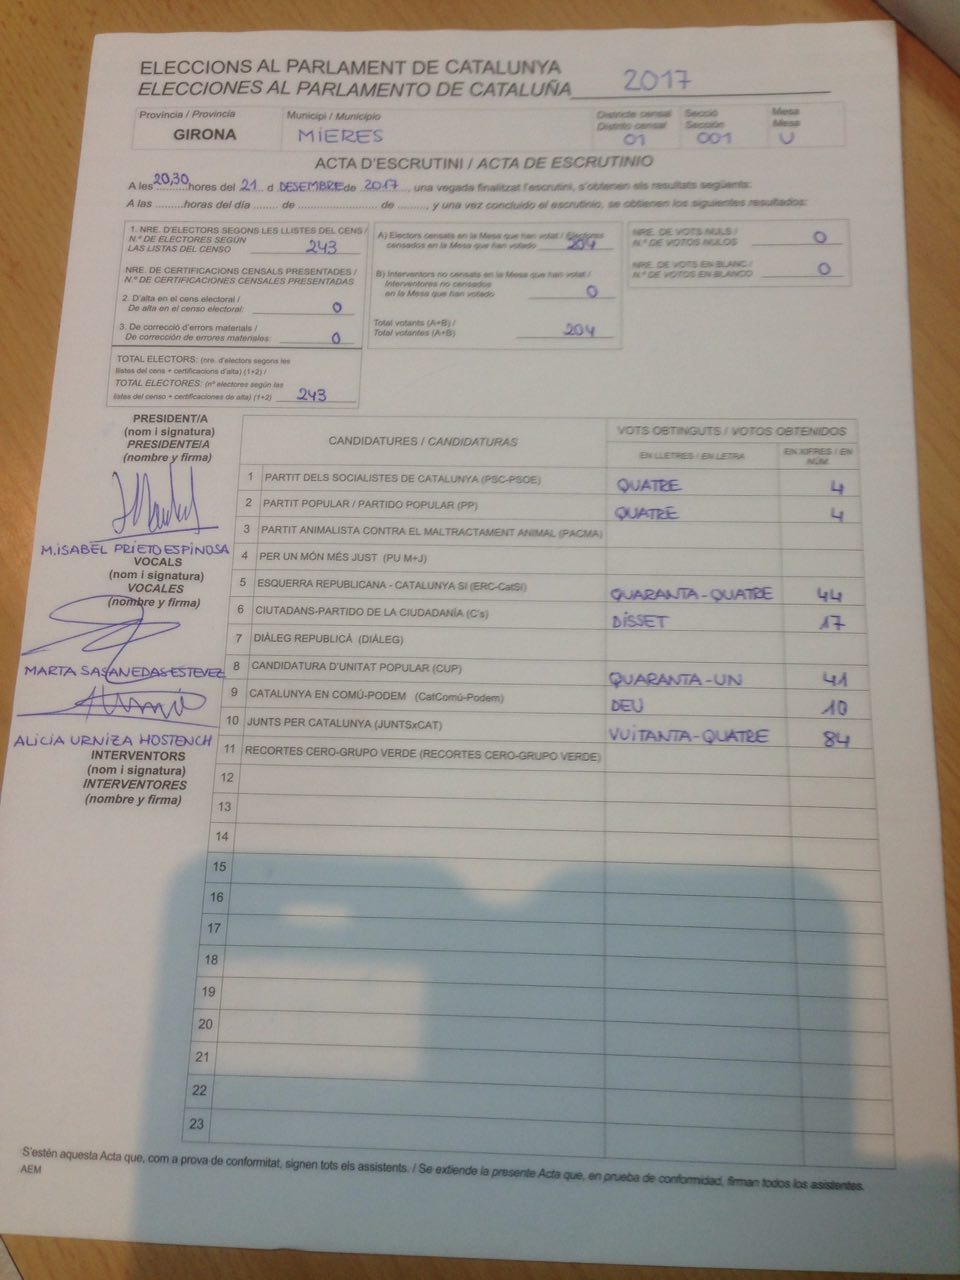 ELECCIONS AL PARLAMENT DE CATALUNYA
ELECCIONES AL PARLAMENTO DE CATALUÑA 2017
Província / Provincia
GIRONA
Municipi / Municipio
MIERES
Districte censal
Distrito censal
01
Secció
Sección
001
Mesa
Mesa
U
ACTA D'ESCRUTINI / ACTA DE ESCRUTINIO
A les 20,30 hores del 21 d DESEMBRE de 2017, una vegada finalitzat l'escrutini, s'obtenen els resultats següents:
A las .........horas del día ....... de ....................... de ........, y una vez concluido el escrutinio, se obtienen los siguientes resultados:
1. NRE. D'ELECTORS SEGONS LES LLISTES DEL CENS /
N.º DE ELECTORES SEGÚN
LAS LISTAS DEL CENSO 243
NRE. DE CERTIFICACIONS CENSALS PRESENTADES /
N.º DE CERTIFICACIONES CENSALES PRESENTADAS
2. D'alta en el cens electoral /
De alta en el censo electoral: 0
3. De correcció d'errors materials /
De corrección de errores materiales: 0
TOTAL ELECTORS: (nre. d'electors segons les
llistes del cens + certificacions d'alta) (1+2) /
TOTAL ELECTORES: (nº electores según las
listas del censo + certificaciones de alta) (1+2) 243
A) Electors censats en la Mesa que han votat / Electores
censados en la Mesa que han votado 204
B) Interventors no censats en la Mesa que han votat /
Interventores no censados
en la Mesa que han votado 0
Total votants (A+B) /
Total votantes (A+B) 204
NRE. DE VOTS NULS /
N.º DE VOTOS NULOS 0
NRE. DE VOTS EN BLANC /
N.º DE VOTOS EN BLANCO 0
PRESIDENT/A
(nom i signatura)
PRESIDENTE/A
(nombre y firma)
M.ISABEL PRIETO ESPINOSA
VOCALS
(nom i signatura)
VOCALES
(nombre y firma)
MARTA SASANEDAS ESTEVEZ
ALICIA URNIZA HOSTENCH
INTERVENTORS
(nom i signatura)
INTERVENTORES
(nombre y firma)
CANDIDATURES / CANDIDATURAS
VOTS OBTINGUTS / VOTOS OBTENIDOS
EN LLETRES / EN LETRA
EN XIFRES / EN
NÚM.
1 PARTIT DELS SOCIALISTES DE CATALUNYA (PSC-PSOE) QUATRE 4
2 PARTIT POPULAR / PARTIDO POPULAR (PP) QUATRE 4
3 PARTIT ANIMALISTA CONTRA EL MALTRACTAMENT ANIMAL (PACMA)
4 PER UN MÓN MÉS JUST (PU M+J)
5 ESQUERRA REPUBLICANA - CATALUNYA SÍ (ERC-CatSí) QUARANTA-QUATRE 44
6 CIUTADANS-PARTIDO DE LA CIUDADANÍA (C's) DISSET 17
7 DIÀLEG REPUBLICÀ (DIÀLEG)
8 CANDIDATURA D'UNITAT POPULAR (CUP) QUARANTA-UN 41
9 CATALUNYA EN COMÚ-PODEM (CatComú-Podem) DEU 10
10 JUNTS PER CATALUNYA (JUNTSxCAT) VUITANTA-QUATRE 84
11 RECORTES CERO-GRUPO VERDE (RECORTES CERO-GRUPO VERDE)
12
13
14
15
16
17
18
19
20
21
22
23
S'estén aquesta Acta que, com a prova de conformitat, signen tots els assistents. / Se extiende la presente Acta que, en prueba de conformidad, firman todos los asistentes.
AEM